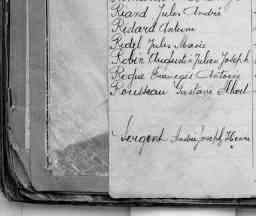 Riand Jules André
Risdard Antime
Ridel Jules Marie
Robin Augustin Julien Joseph
Roque François Antoine
Rousseau Gustave Albert
Sergent André Joseph Henri